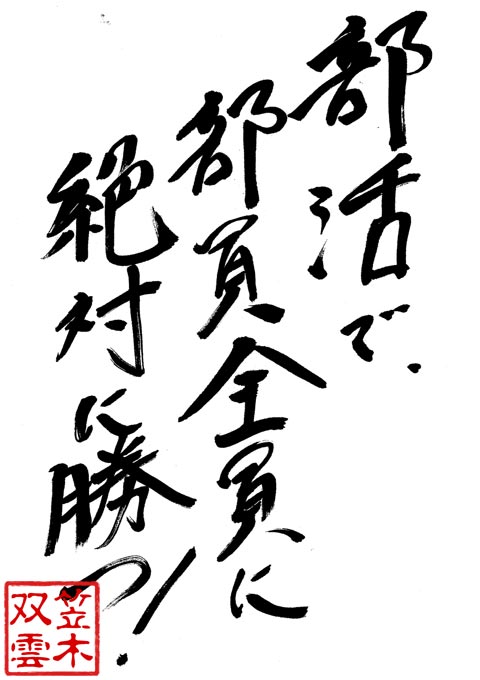 部活で、
部員全員に
絶対に勝つ!
笠木
双雲